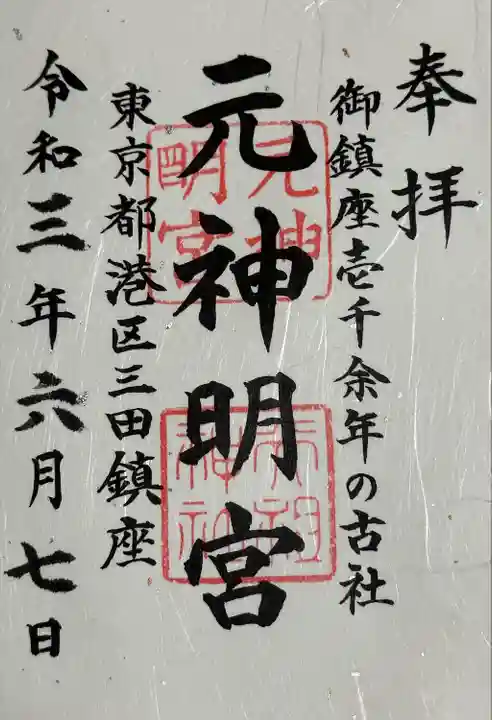 奉拝
御鎮座壱千余年の古社
元神明宮
東京都港区三田鎮座
令和三年六月七日